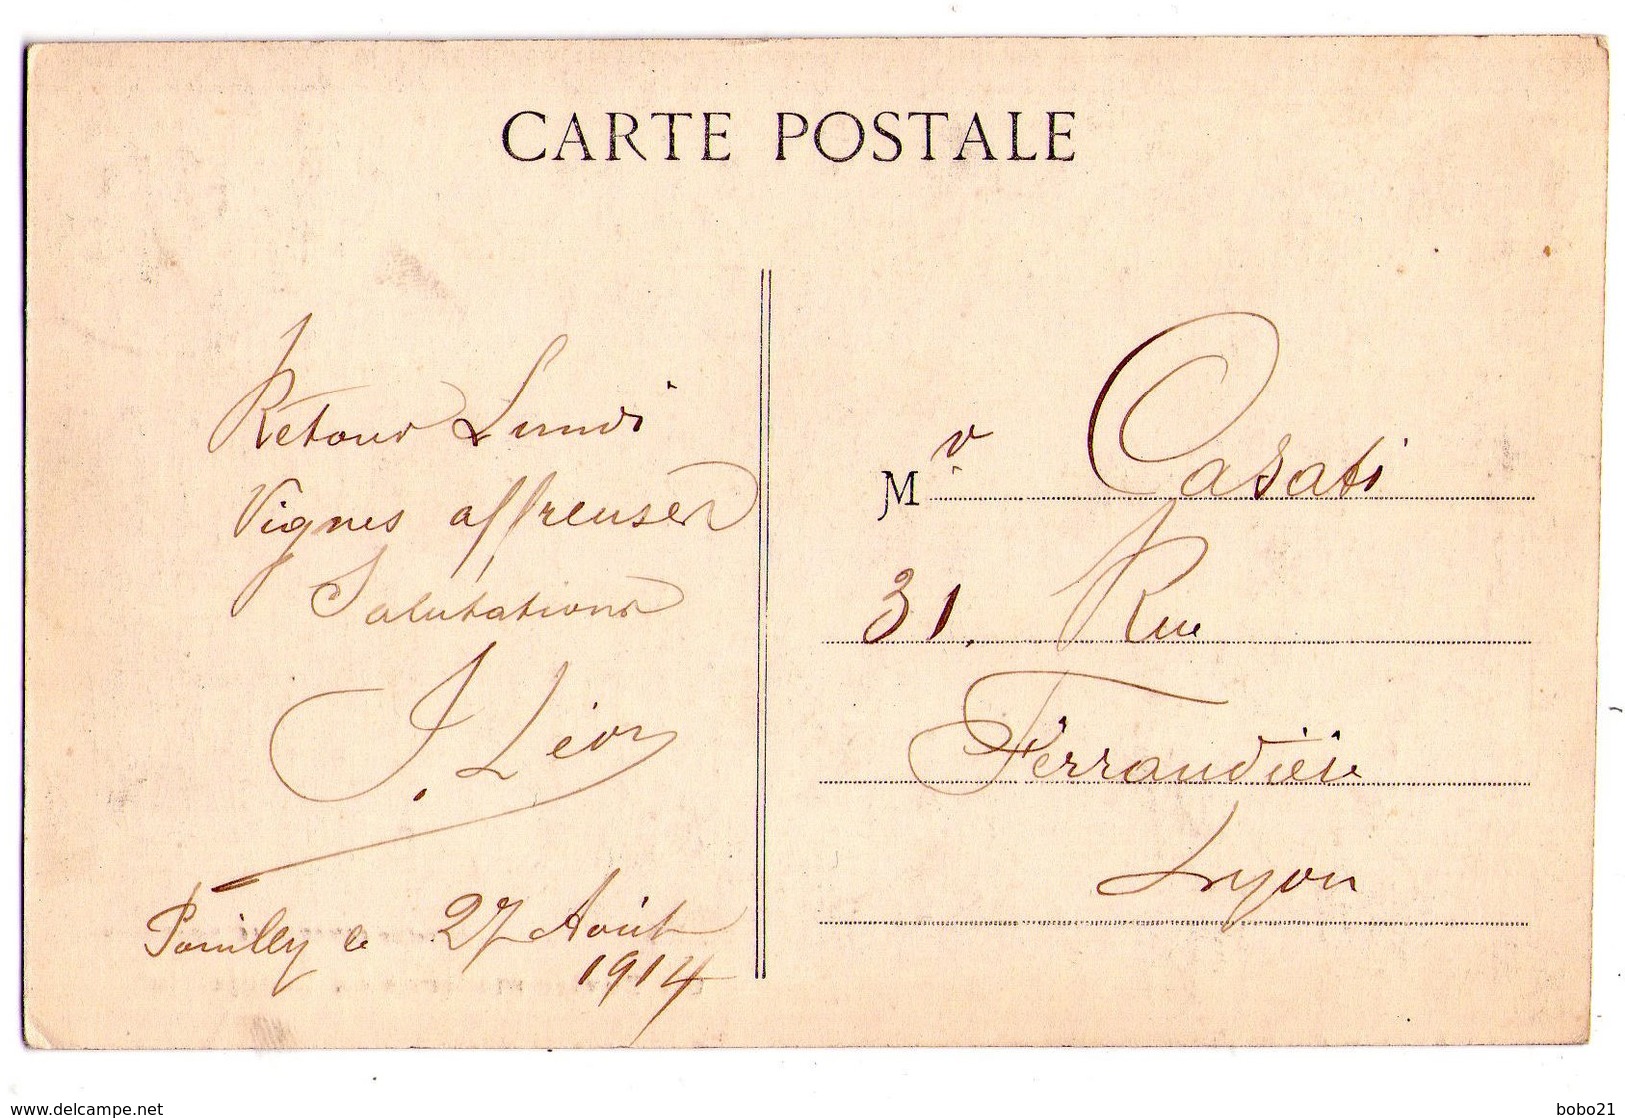 CARTE POSTALE
Retour Lundi
Vignes affreuses
Salutations
J. Léon
Pouilly le 27 Août
1914
Mr Casati
31. Rue
Ferrandière
Lyon
www.delcampe.net
bobo21